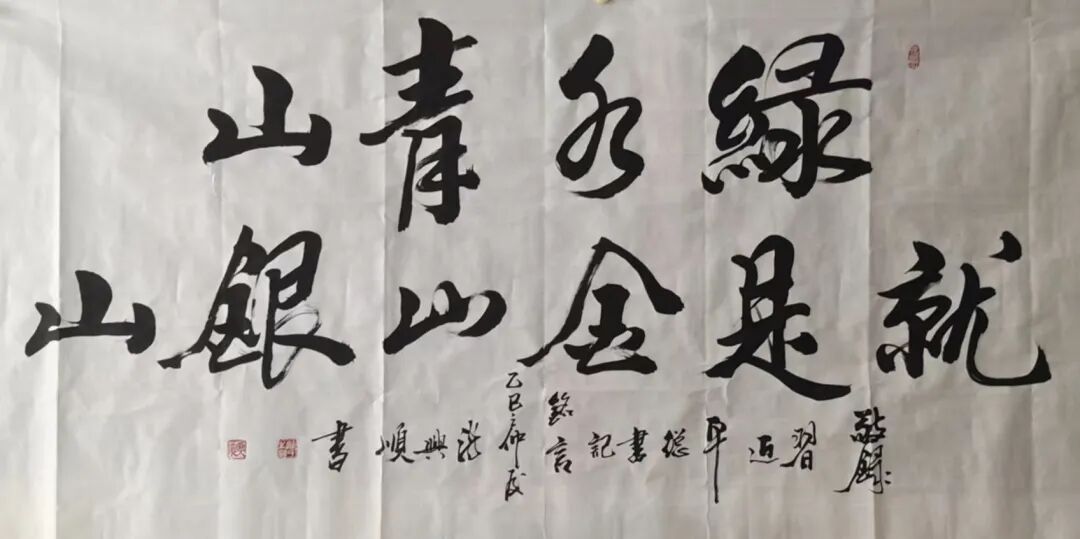 綠水青山
就是金山銀山
敬錄
習近平總書記
銘言
乙巳
興順書